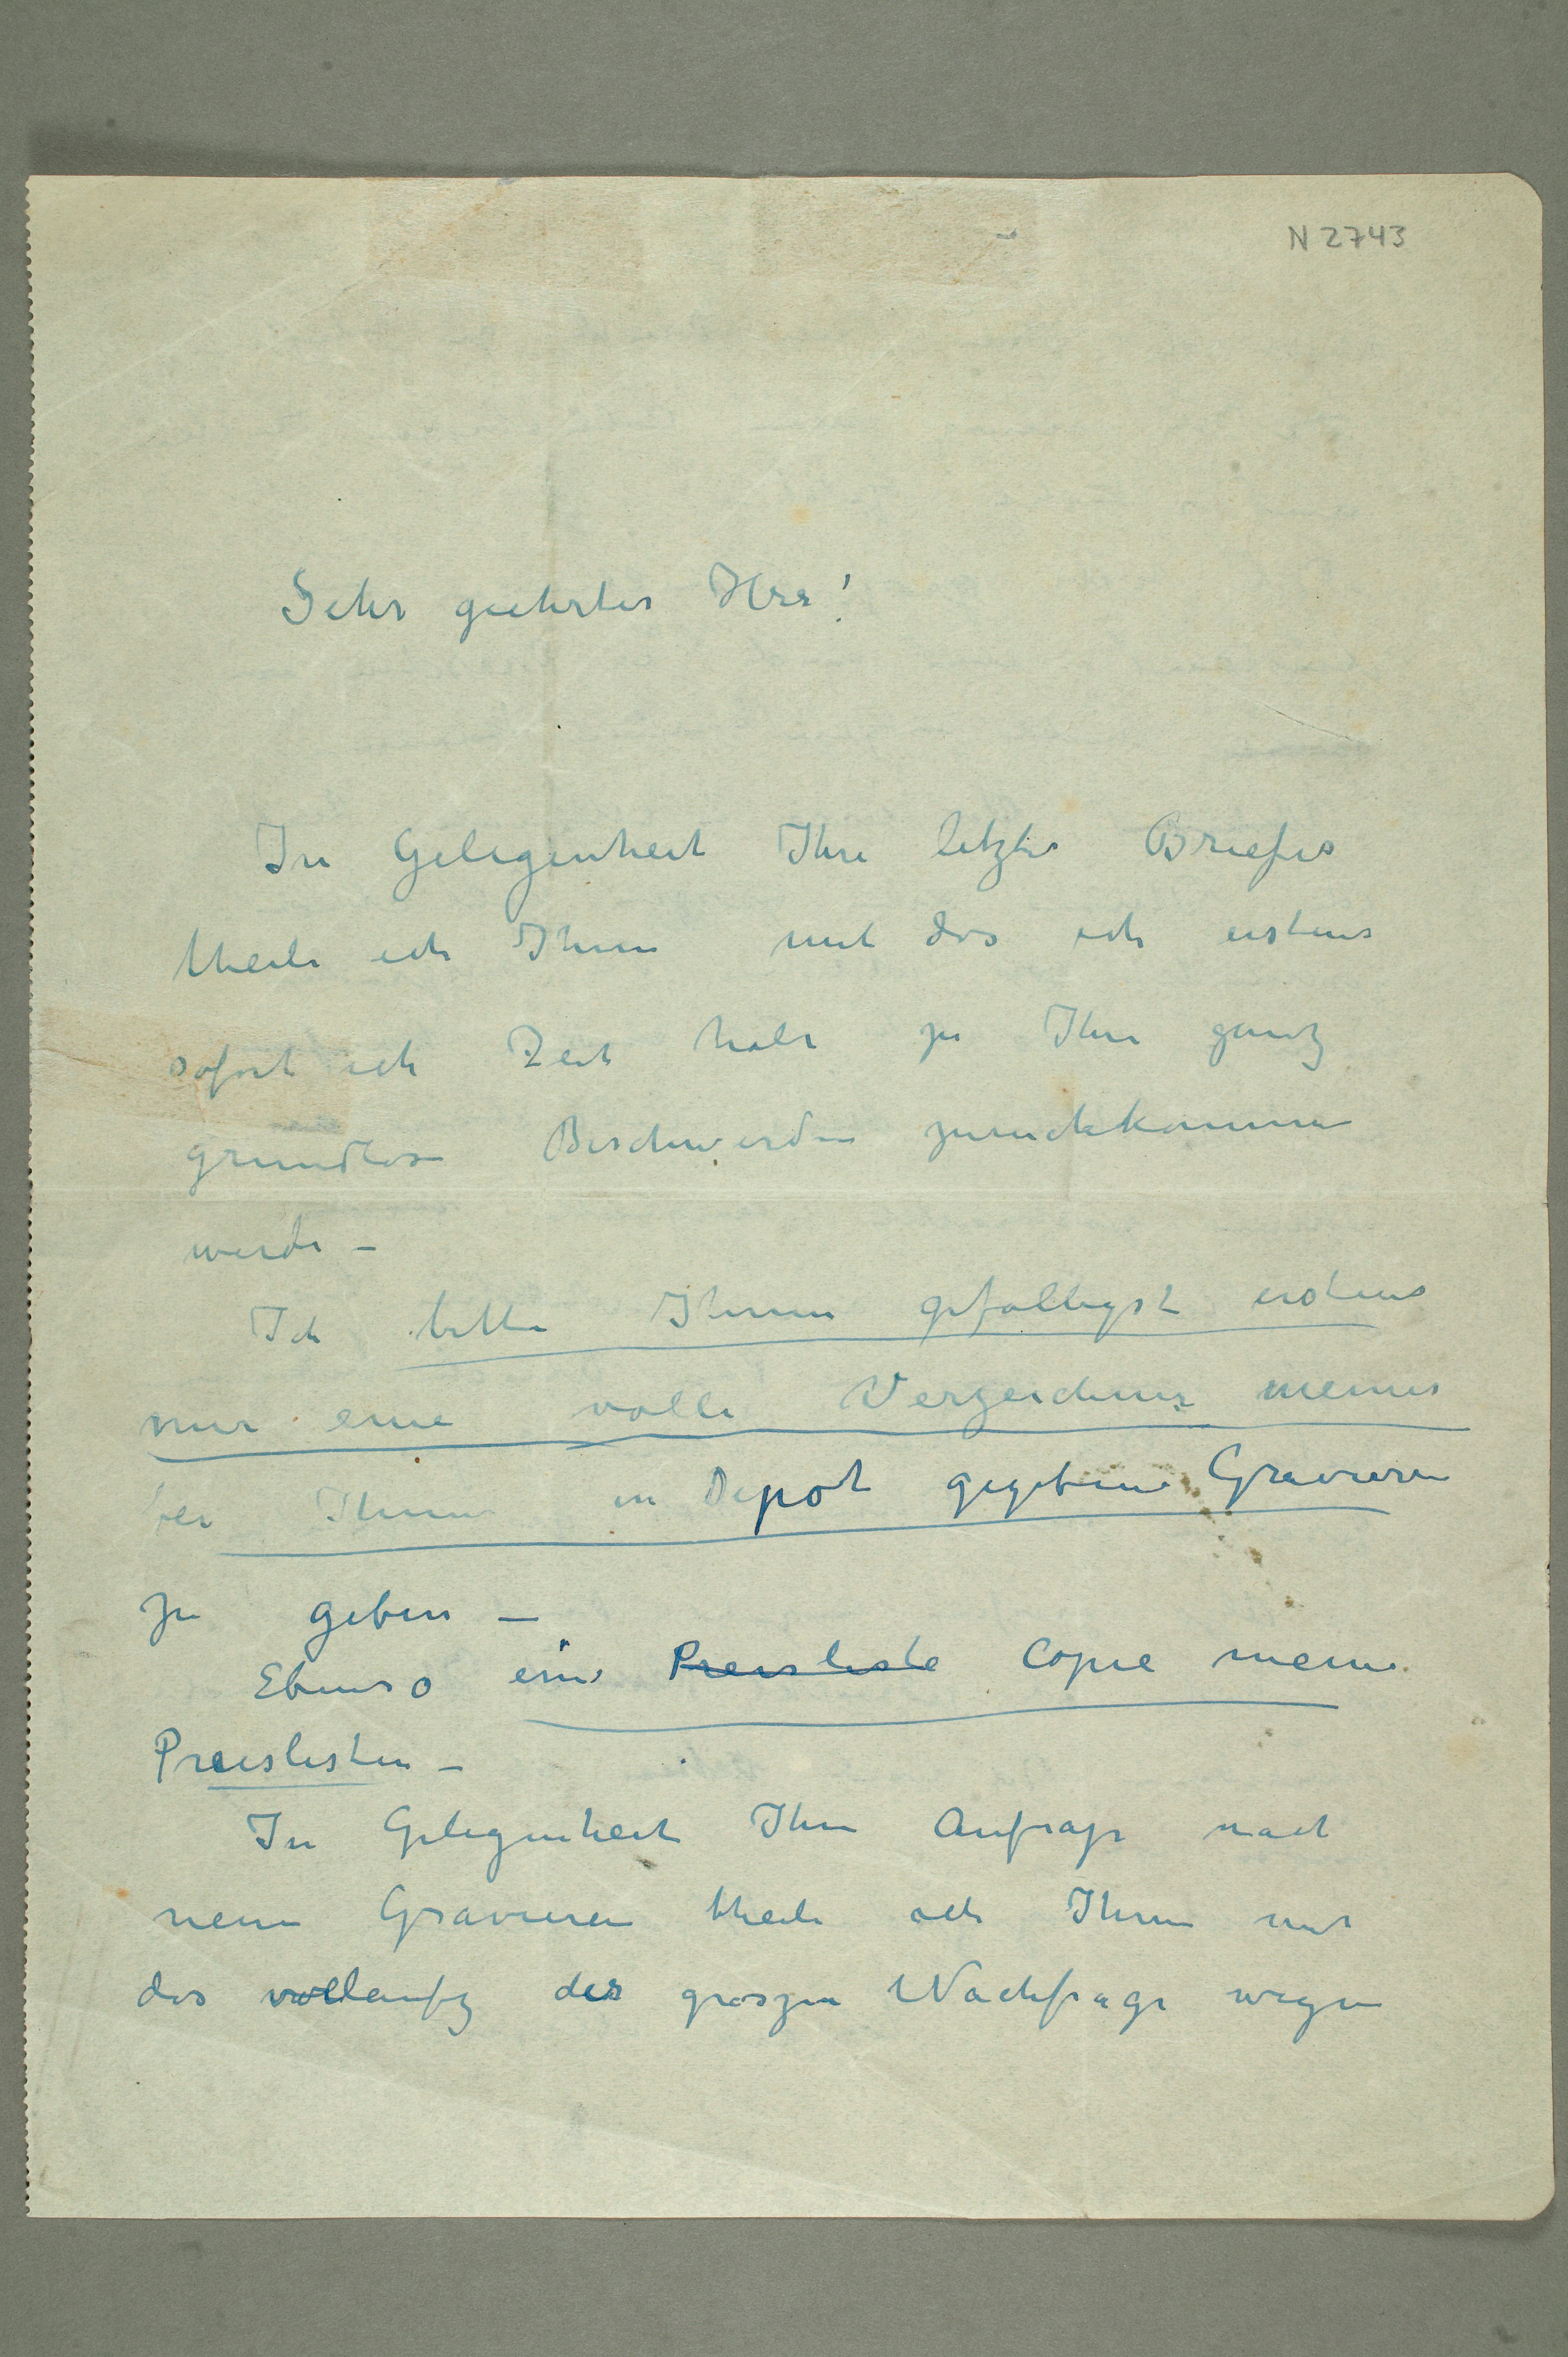 N 2743
Sehr geehrter Herr!
In Gelegenheit Ihre letzter Briefes
theile ich Ihnen mit das ich erstens
sofort ich Zeit habe zu Ihre ganz
grundlose Beschwerden zuruckkommen
werde –
Ich bitte Ihnen gefälligst erstens
mir eine volle Verzeichniz meiner
bei Ihnen in Depot gegebene Gravuren
zu geben –
Ebenso eine Preisliste Copie meine
Preislisten –
In Gelegenheit Ihre Anfrage nach
neuen Gravuren theile ich Ihnen mit
das vorlaufig der groszen Nachfrage wegen